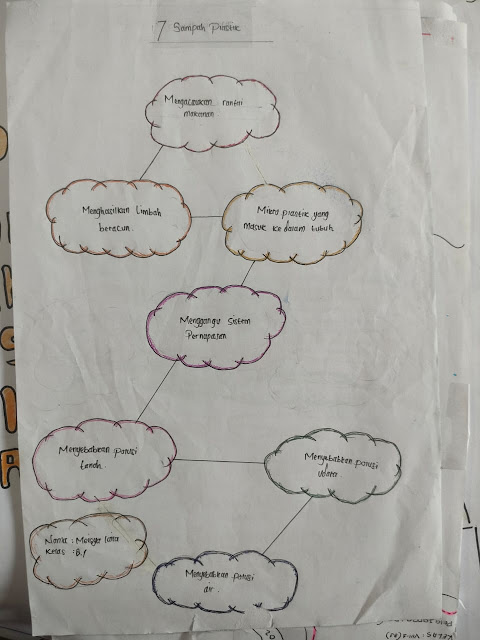 7 Sampah Plastik
Mengacaukan rantai
makanan
Menghasilkan Limbah
beracun.
Mikro plastik yang
masuk ke dalam tubuh
Menggangu Sistem
Pernapasan
Menyebabkan polusi
tanah.
Menyebabkan polusi
udara.
Nama :
Kelas : 8.1
Menyebabkan polusi
air.